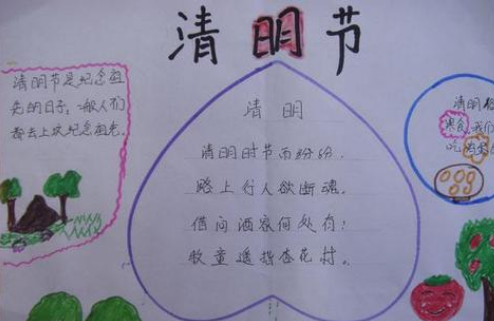 清明节
清明节是纪念祖
先的日子,一般人们
都去上坟纪念祖先.
清 明
清明时节雨纷纷,
路上行人欲断魂。
借问酒家何处有?
牧童遥指杏花村。
清明
寒食 我们
吃